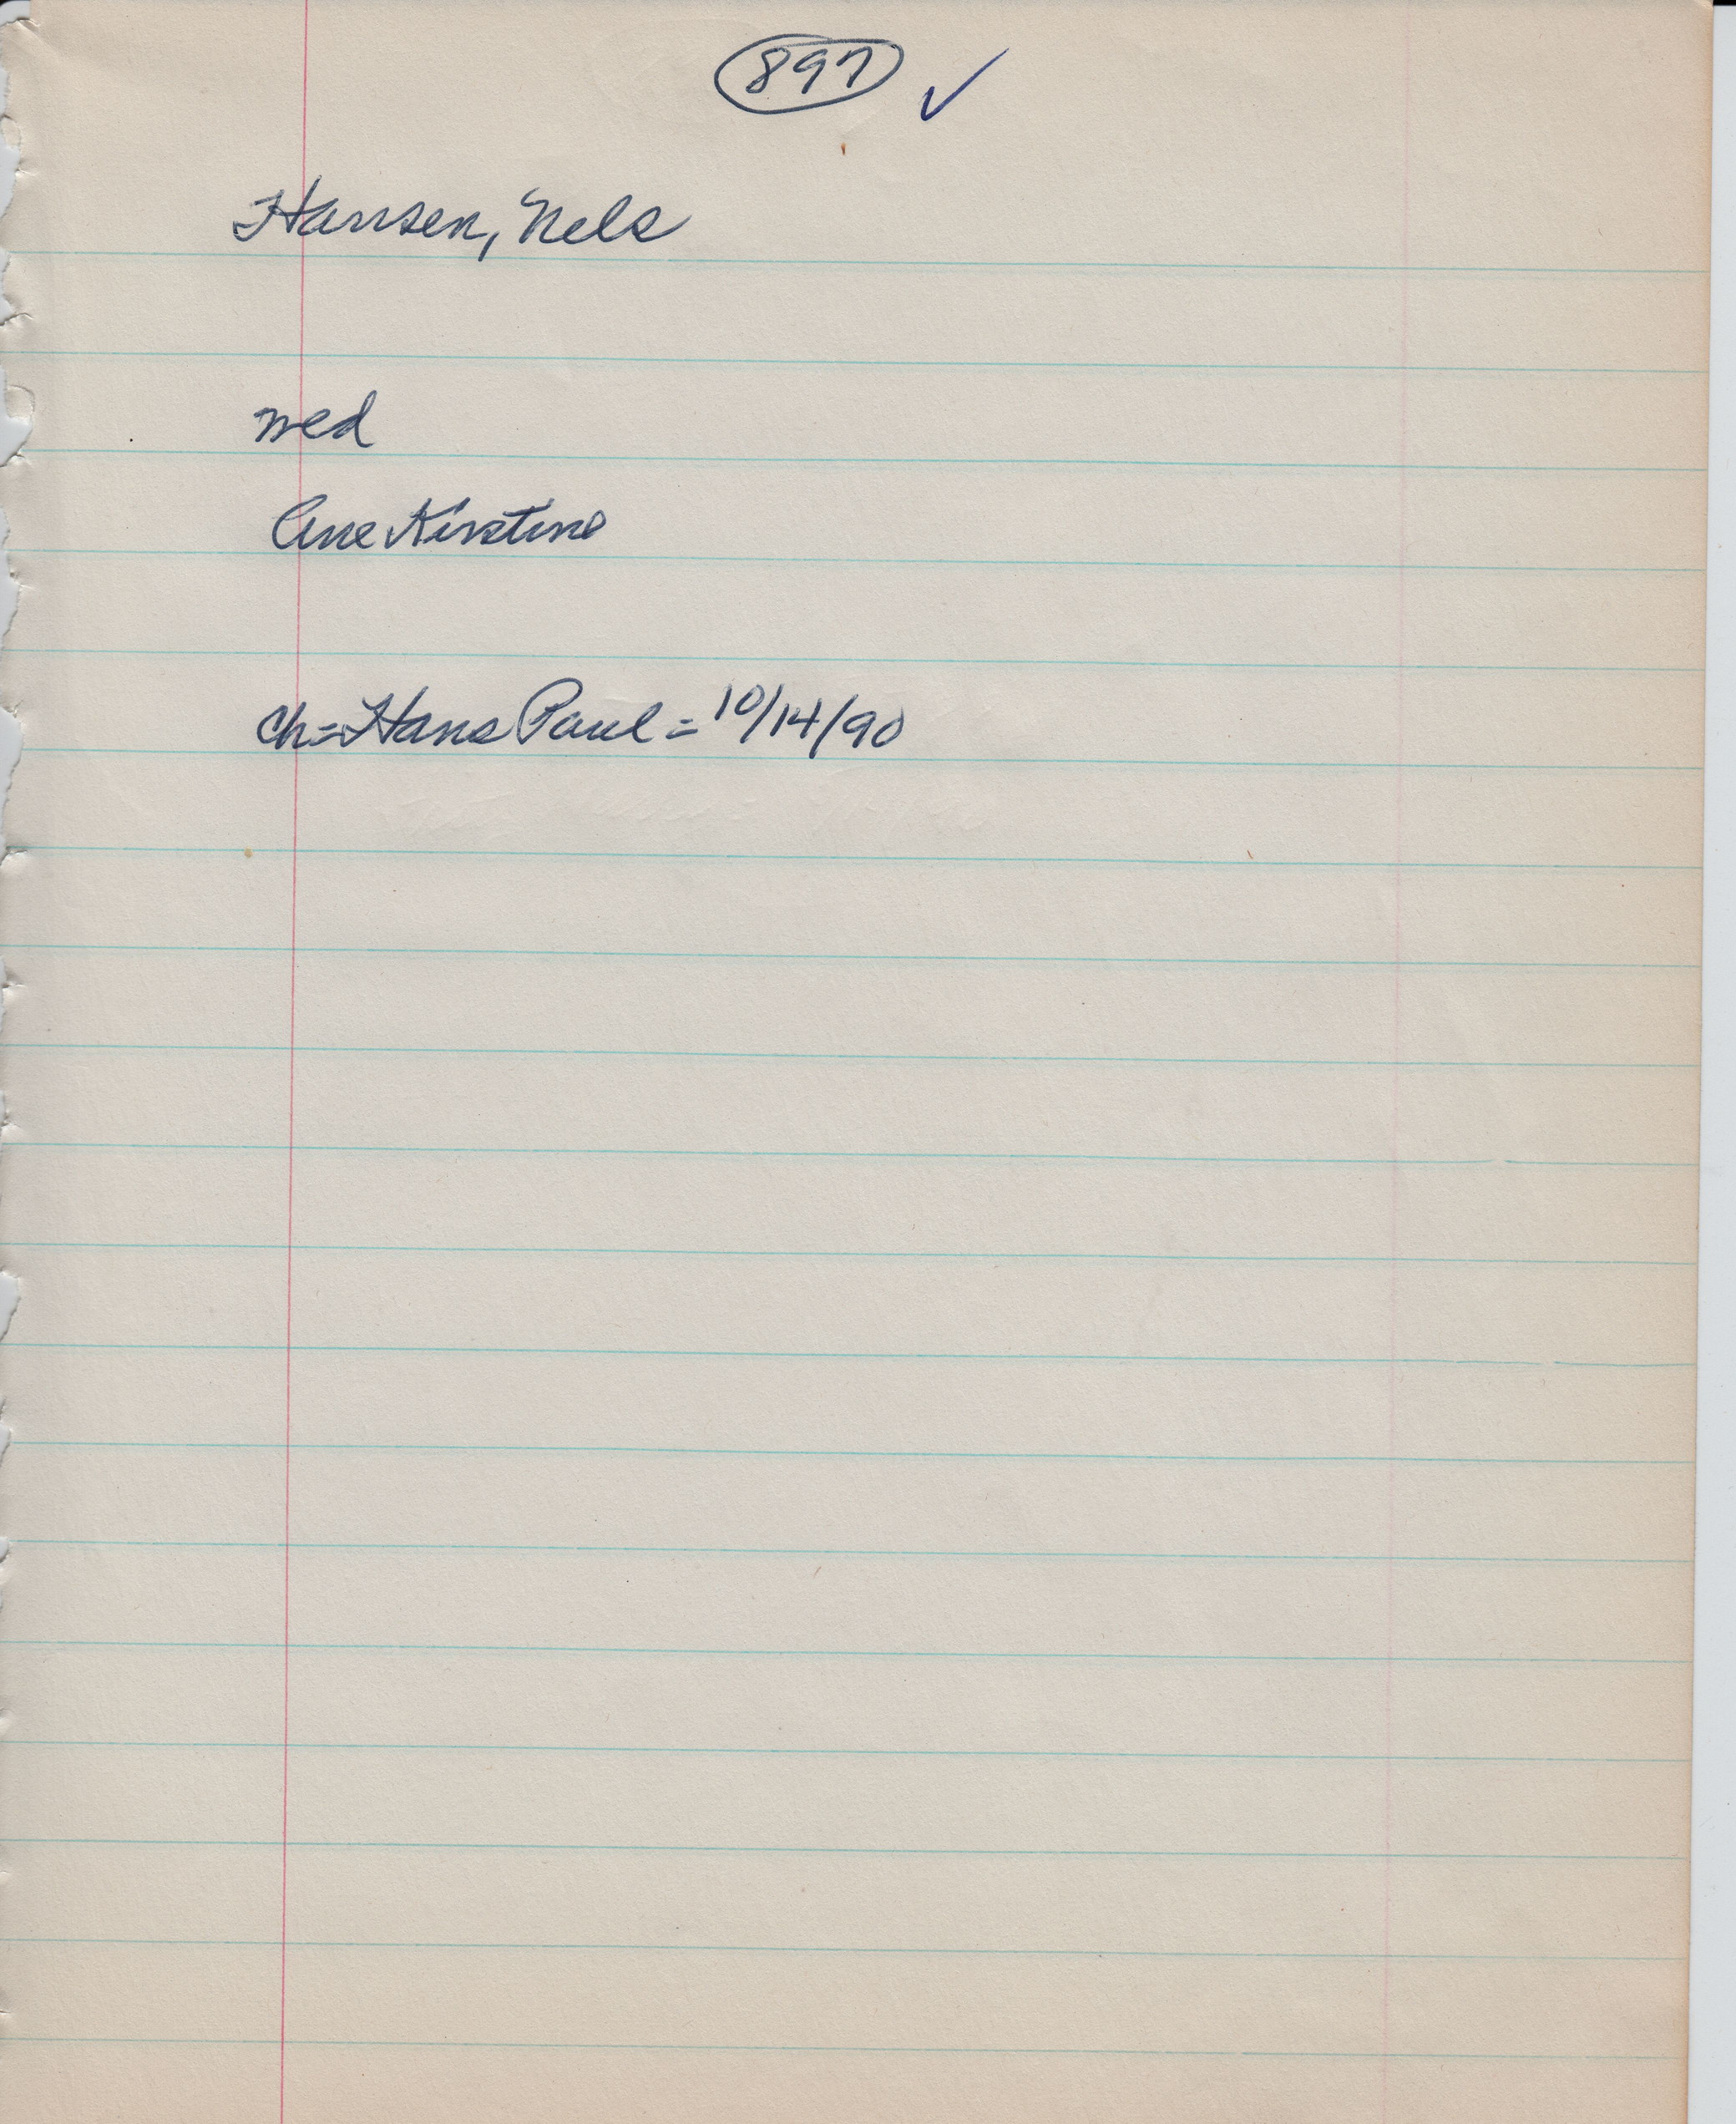 897 ✓
Hansen, Nels
wed
Ane Kirstine
ch=Hans Paul=10/14/90